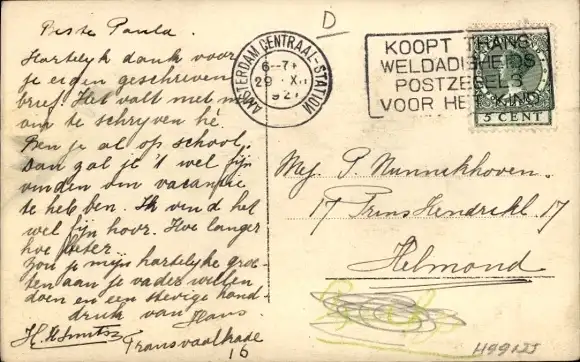 Beste Paula.
Hartelijk dank voor
je eigen geschreven
brief. Het valt met mee
om te schrijven hé.
Ben je al op school,
dan zal je 't wel fijn
vinden om vacantie
te hebben. Ik vind het
wel fijn hoor. Hoe langer
hoe beter.
Zou je mijn hartelijke groe-
ten aan je vader willen
doen en een stevige hand-
druk van Hans
Transvaalkade
16
D
AMSTERDAM CENTRAAL-STATION
29 XII
KOOPT THANS
WELDADIGHEIDS
POSTZEGELS
VOOR HET KIND
5 CENT
Mej. P. Nunnikhoven.
17 Prins Hendrikl 17
Helmond